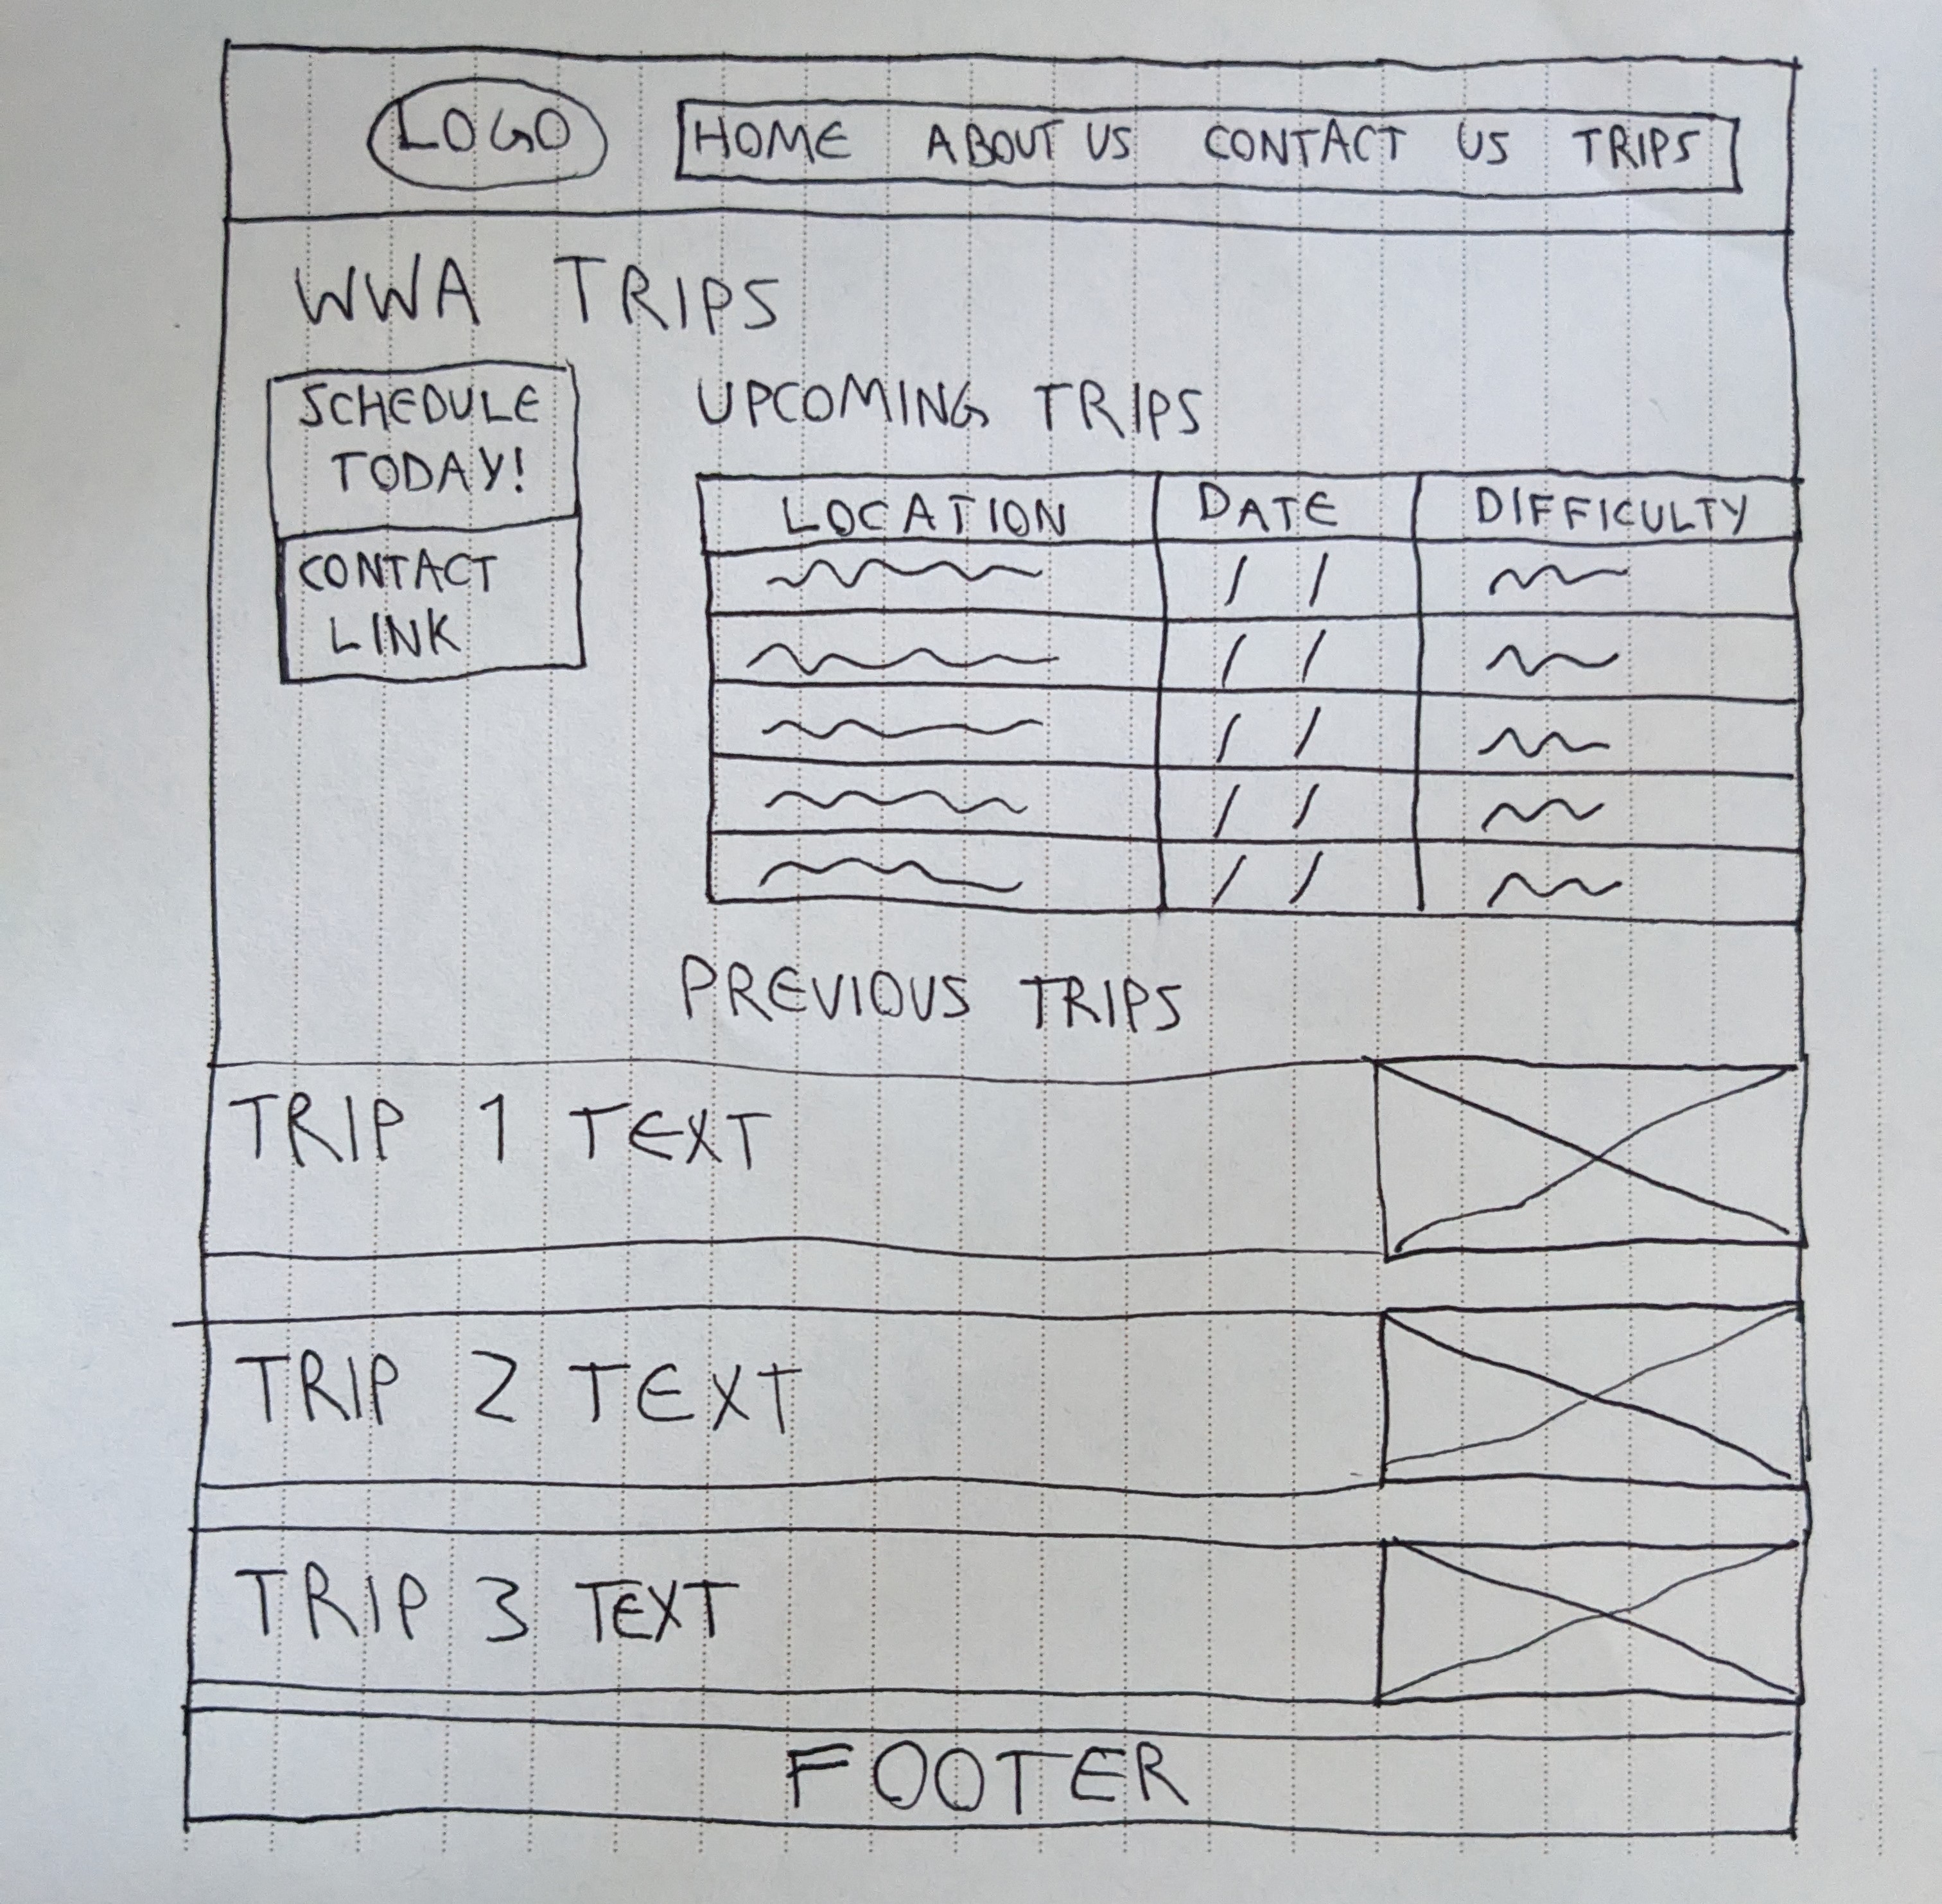 LOGO HOME ABOUT US CONTACT US TRIPS
WWA TRIPS
SCHEDULE
TODAY!
CONTACT
LINK
UPCOMING TRIPS
LOCATION DATE DIFFICULTY
/ /
/ /
/ /
/ /
/ /
PREVIOUS TRIPS
TRIP 1 TEXT
TRIP 2 TEXT
TRIP 3 TEXT
FOOTER